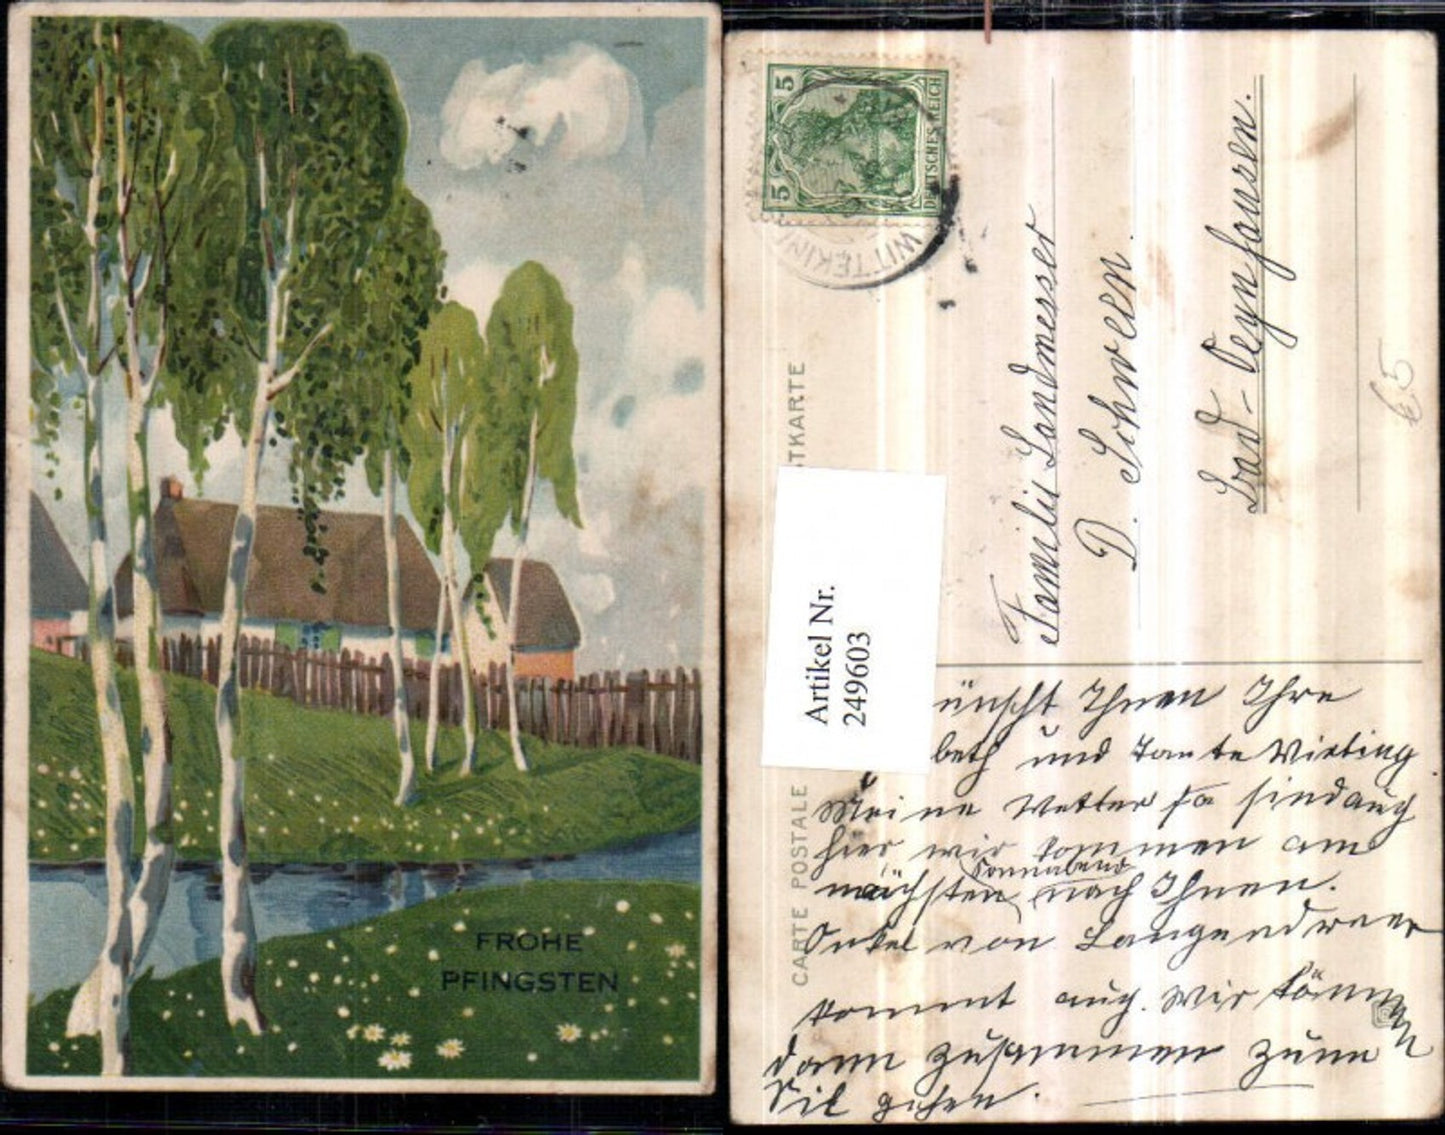 FROHE
PFINGSTEN
5
5
DEUTSCHES REICH
WITTEKIN
TKARTE
CARTE POSTALE
Artikel Nr.
249603
Familie Landmesser
D. Schween.
Bad-Oeynhausen.
€5
ünscht Ihnen Ihre
beth und Tante
Meine sind auch
hier wir kommen am
Sonnabend
nächsten nach Ihnen.
Onkel von Langendreer
kommt auch. Wir können
dann zusammen zum
gehen.